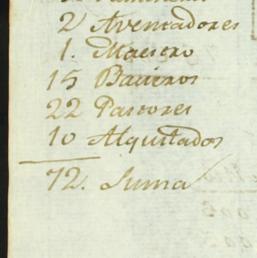 2 Aventadores
1. Maestro
15 Baceros
22 Pastores
10 Alquilados
72. Suma